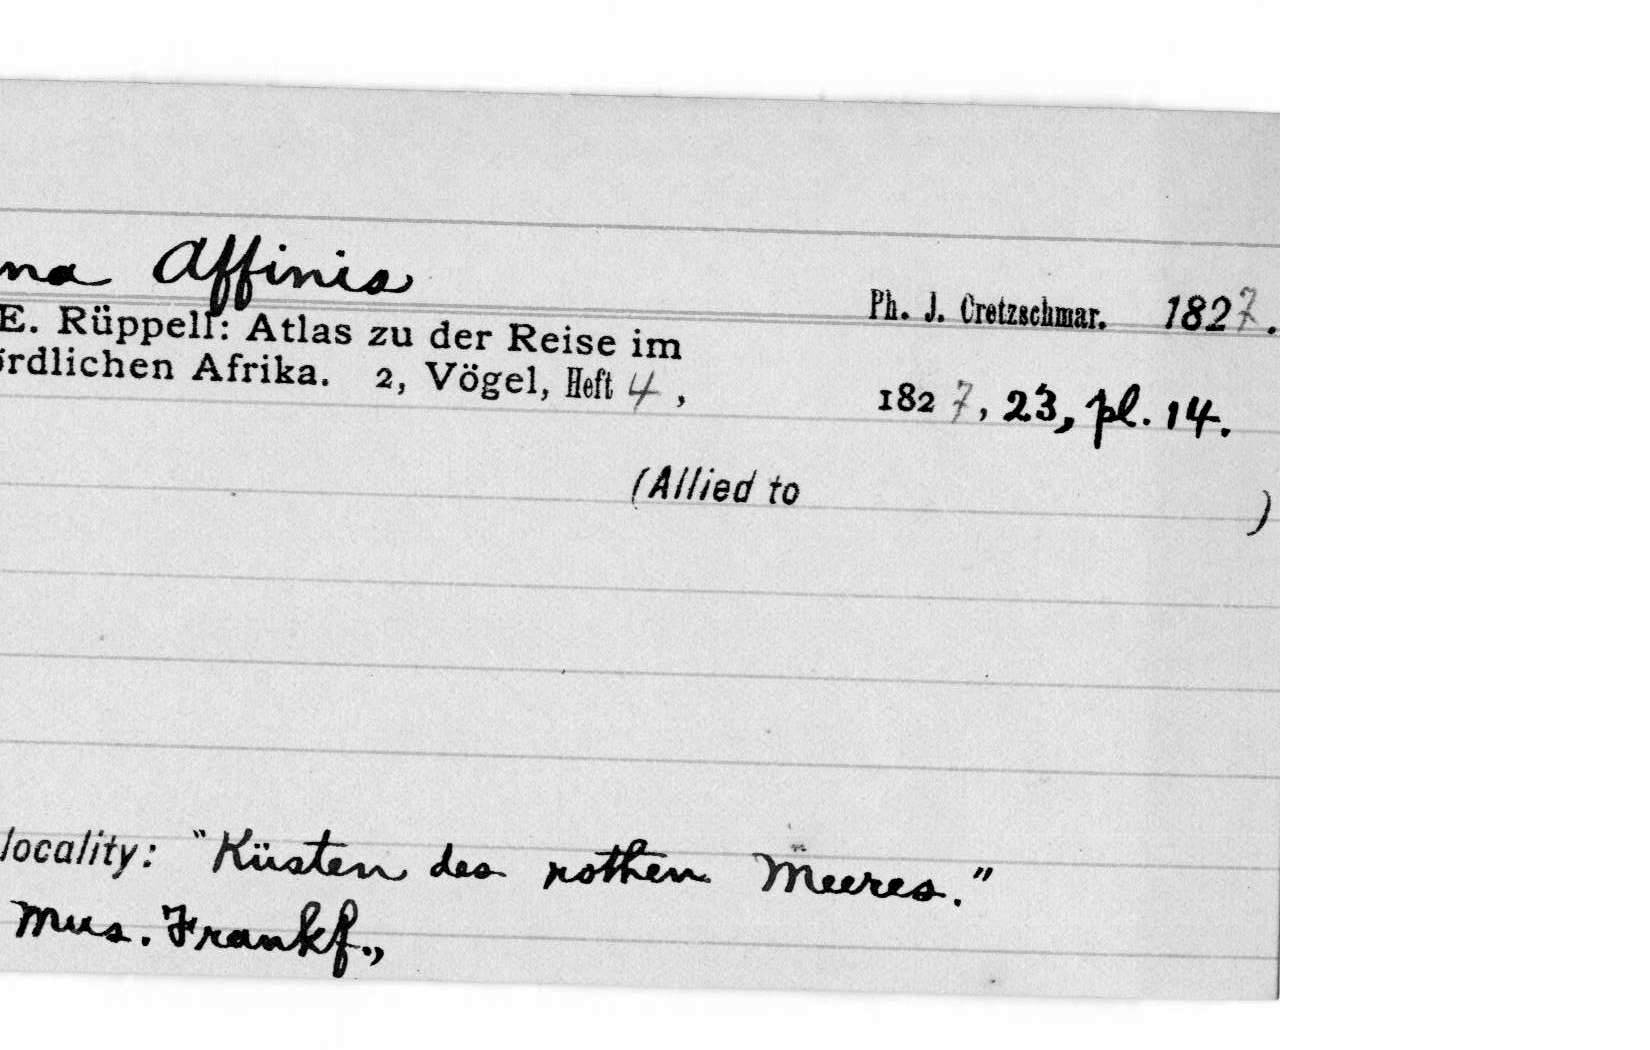 na Affinis
Ph. J. Cretzschmar. 1827.
E. Rüppell: Atlas zu der Reise im
ördlichen Afrika. 2, Vögel, Heft 4, 1827, 23, pl. 14.
(Allied to )
locality: "Küsten des rothen Meeres."
Mus. Frankf.,